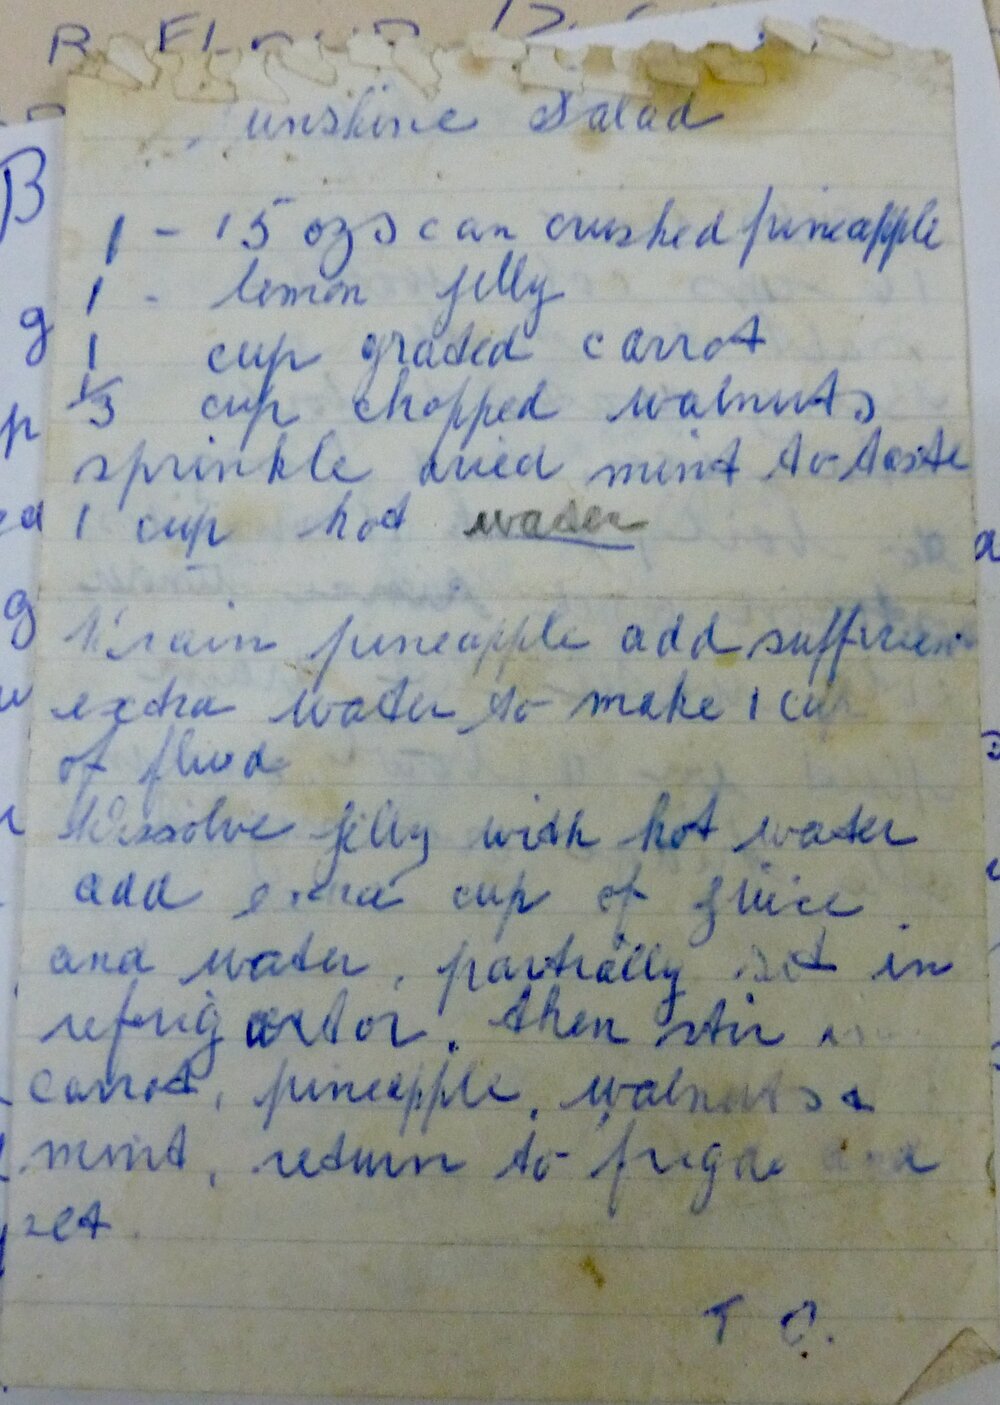 Sunshine Salad
1 - 15 ozs can crushed pineapple
1 - lemon jelly
1 cup grated carrot
1/3 cup chopped walnuts
sprinkle dried mint to taste
1 cup hot water
Drain pineapple add sufficient
extra water to make 1 cup
of fluid
Dissolve jelly with hot water
add extra cup of juice
and water, partially set in
refrigartor. then stir in
carrot, pineapple, walnuts &
mint, return to frigde and
set.
T O.